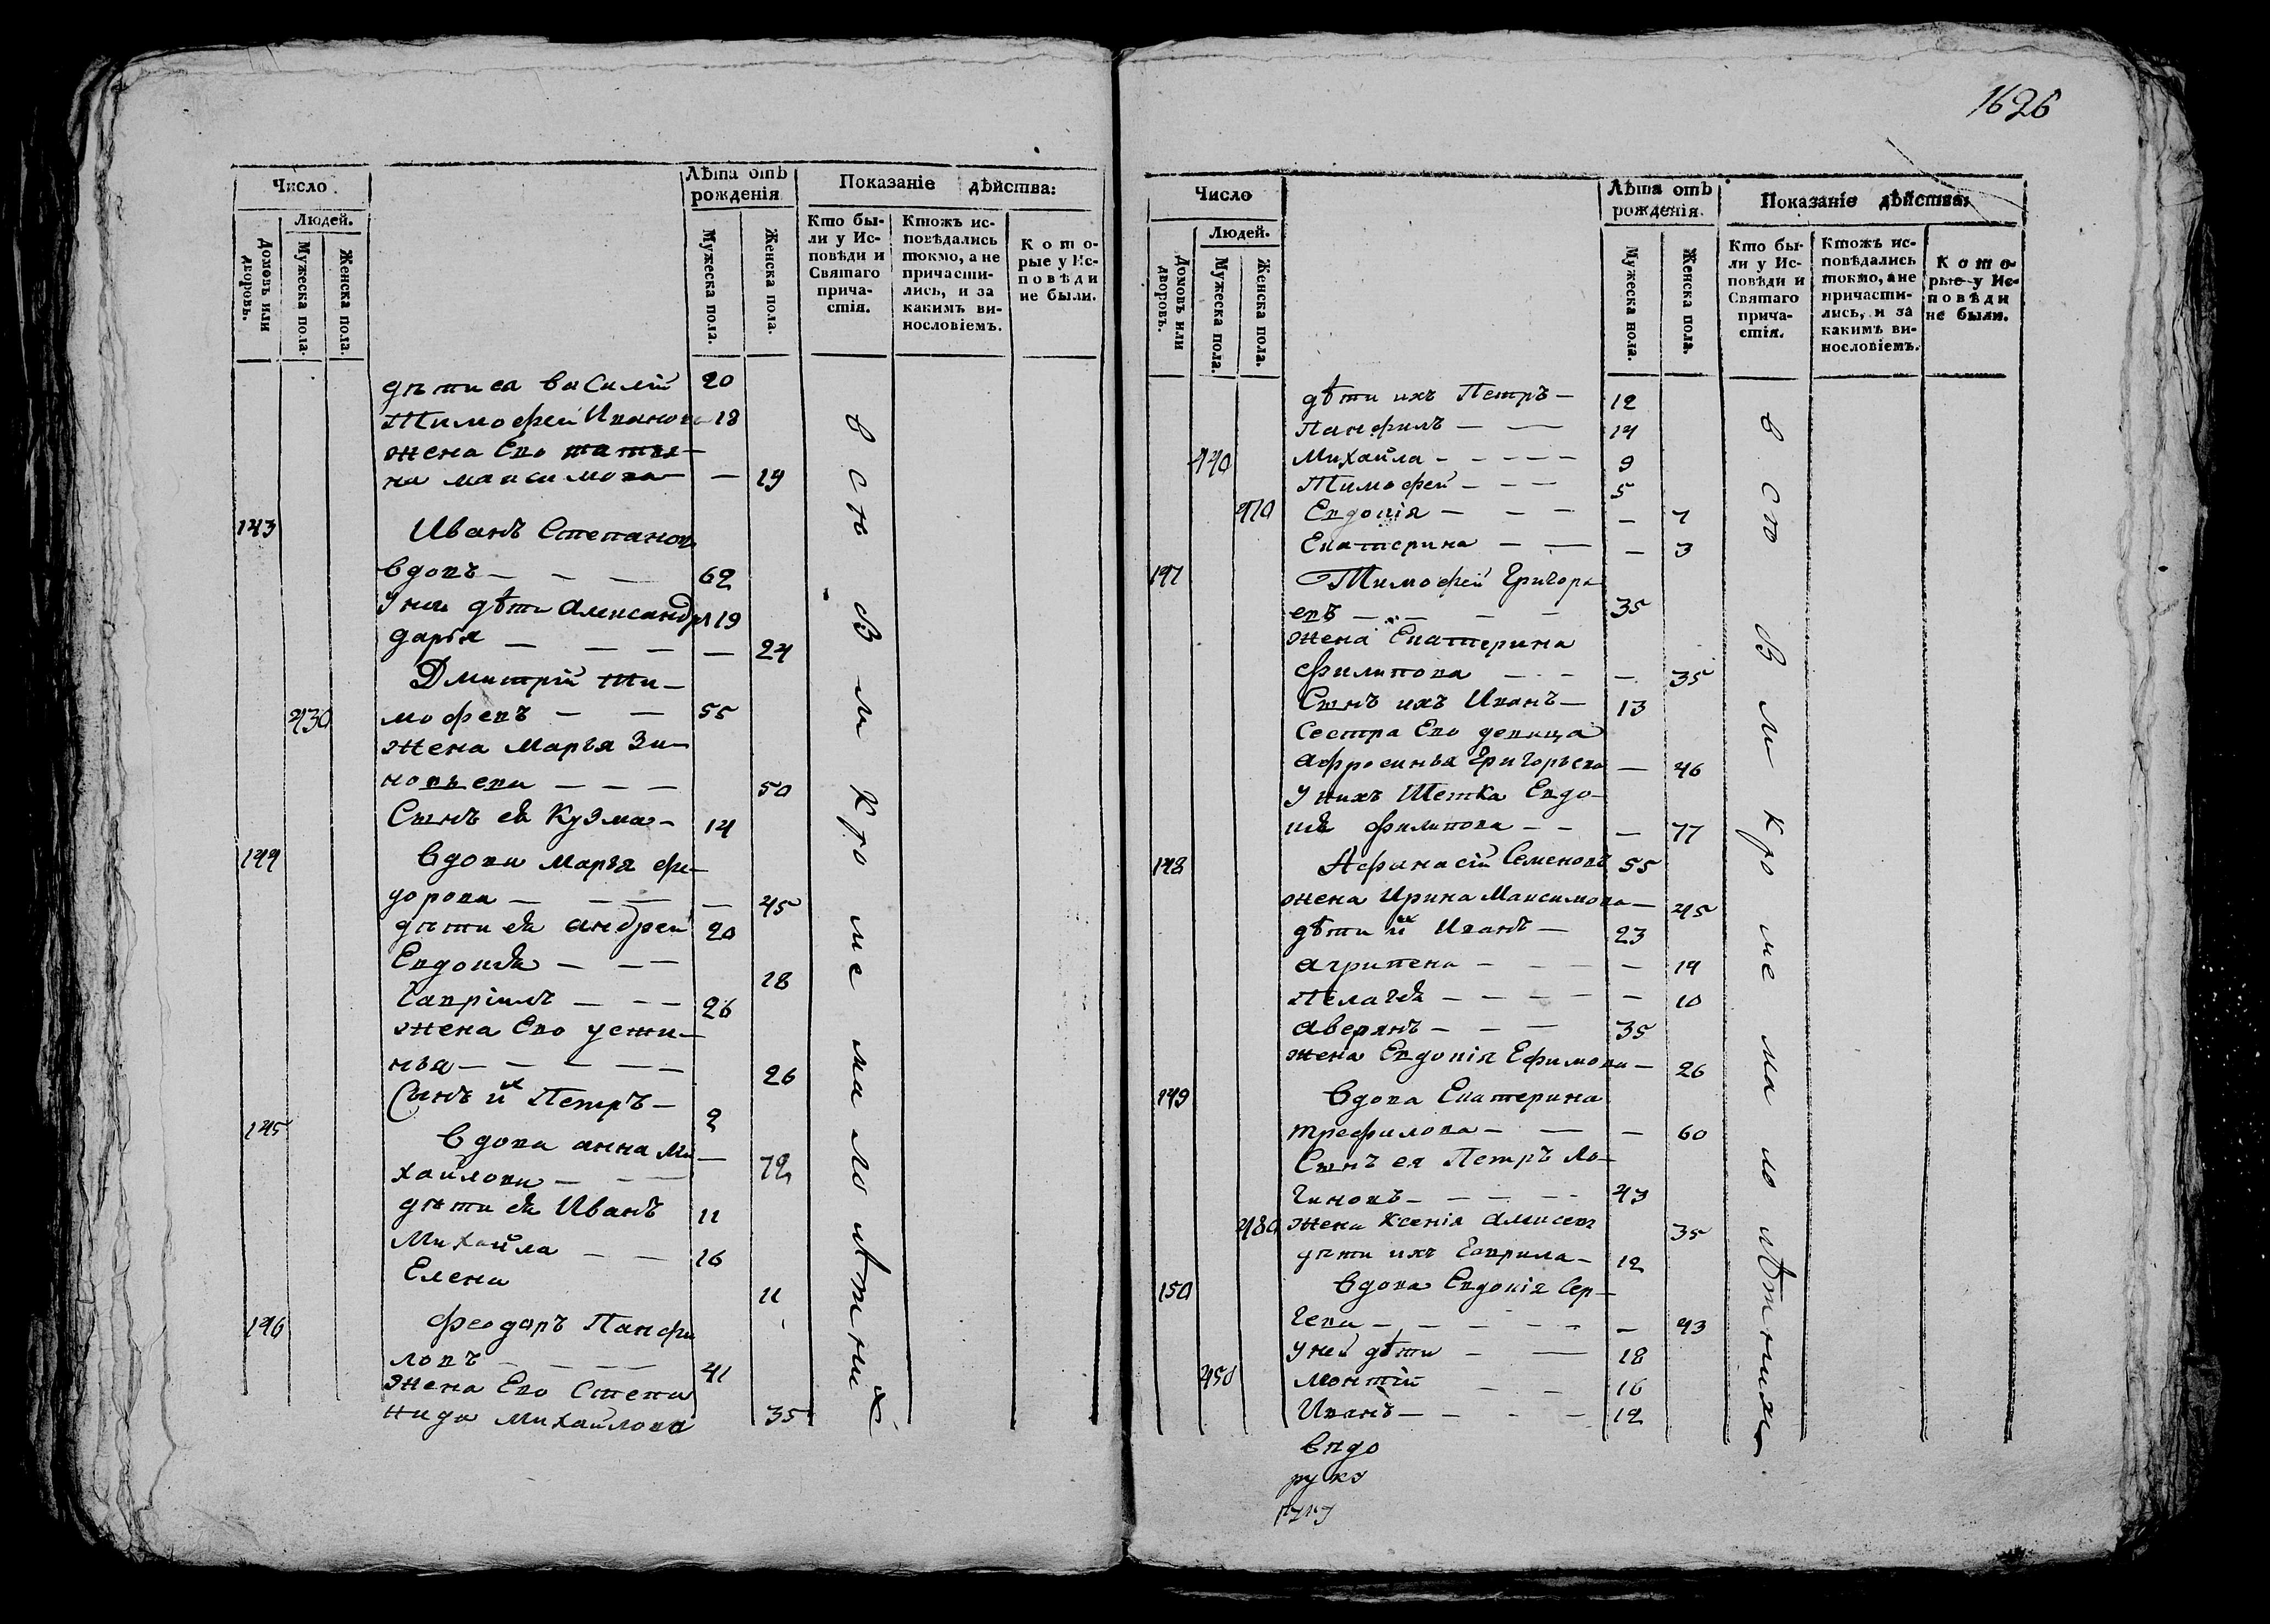 1626
Число
Людей.
Домовъ или дворовъ.
Мужеска пола.
Женска пола.
Лѣта отъ рожденія
Мужеска пола.
Женска пола.
Показаніе дѣйства:
Кто бы-
ли у Ис-
повѣди и
Святаго
прича-
стія.
Ктожъ ис-
повѣдались
токмо, а не
причасти-
лись, и за
какимъ ви-
нословіемъ.
Кото-
рые у Ис-
повѣди
не были.
дѣти ея василій 20
Тимофей Иванов 18
жена Ево татья-
на максимова — 19
143 Иванъ Степанов
вдовъ — — — 62
У нии дѣти Александръ 19
дарья — — — — 24
Дмитрій ти-
430 мофеевъ — — 55
жена Марья Зи-
новьева — — — 50
Сынъ ея Кузма — 14
144 вдова Марья фе-
дорова — — — — 45
дѣти ея андрей 20
Евдокія — — — 18
Гавріилъ — — — 26
жена Ево усти-
нья — — — — — 26
Сынъ их Петръ — 2
145 вдова анна Ми —
хайлова — — — 72
дѣти ея Иванъ 11
Михайла — — 16
Елена 11
146 феодоръ Панфи
ловъ — — — — 41
жена Ево Степа
нида Михайлова 35
всѣ Вмикроме малолѣтних
Число
Людей.
Домовъ или дворовъ.
Мужеска пола.
Женска пола.
Лѣта отъ рожденія.
Мужеска пола.
Женска пола.
Показаніе дѣйства:
Кто бы-
ли у Ис-
повѣди и
Святаго
прича-
стія.
Ктожъ ис-
повѣдались
токмо, а не
причасти-
лись, и за
какимъ ви-
нословіемъ.
Кото-
рые у Ис-
повѣди
не были.
дѣти ихъ Петръ — 12
Панфилъ — — 14
440 Михайла — — — — — 9
Тимофей — — — 5
470 Евдокія — — — — 7
Екатерина — — — 3
147 Тимофей Григорь
евъ — — — — 35
жена Екатерина
филипова — — — — 35
Сынъ ихъ Иванъ — 13
Сестра Ево девица
афросинья Григорьева — 46
У нихъ тетка Евдо-
кія филипова — — — 77
148 Афанасій Семеновъ 55
жена Ирина Максимова — 45
дѣти их Иванъ — 23
агрипена — — — — — 14
Пелагея — — — — — 10
аверянъ — — — 35
жена Евдокія Ефимова — 26
149 вдова Екатерина
трефилова — — — 60
Сынъ ея Петръ Ло-
гиновъ — — — — — 43
480 жена Ксенія алексев 35
дѣти ихъ Гаврила — 12
150 вдова Евдокія Сер-
геева — — — — — — 43
у ней дѣти — — 18
450 Монтій — — 16
Иванъ — — — — 12